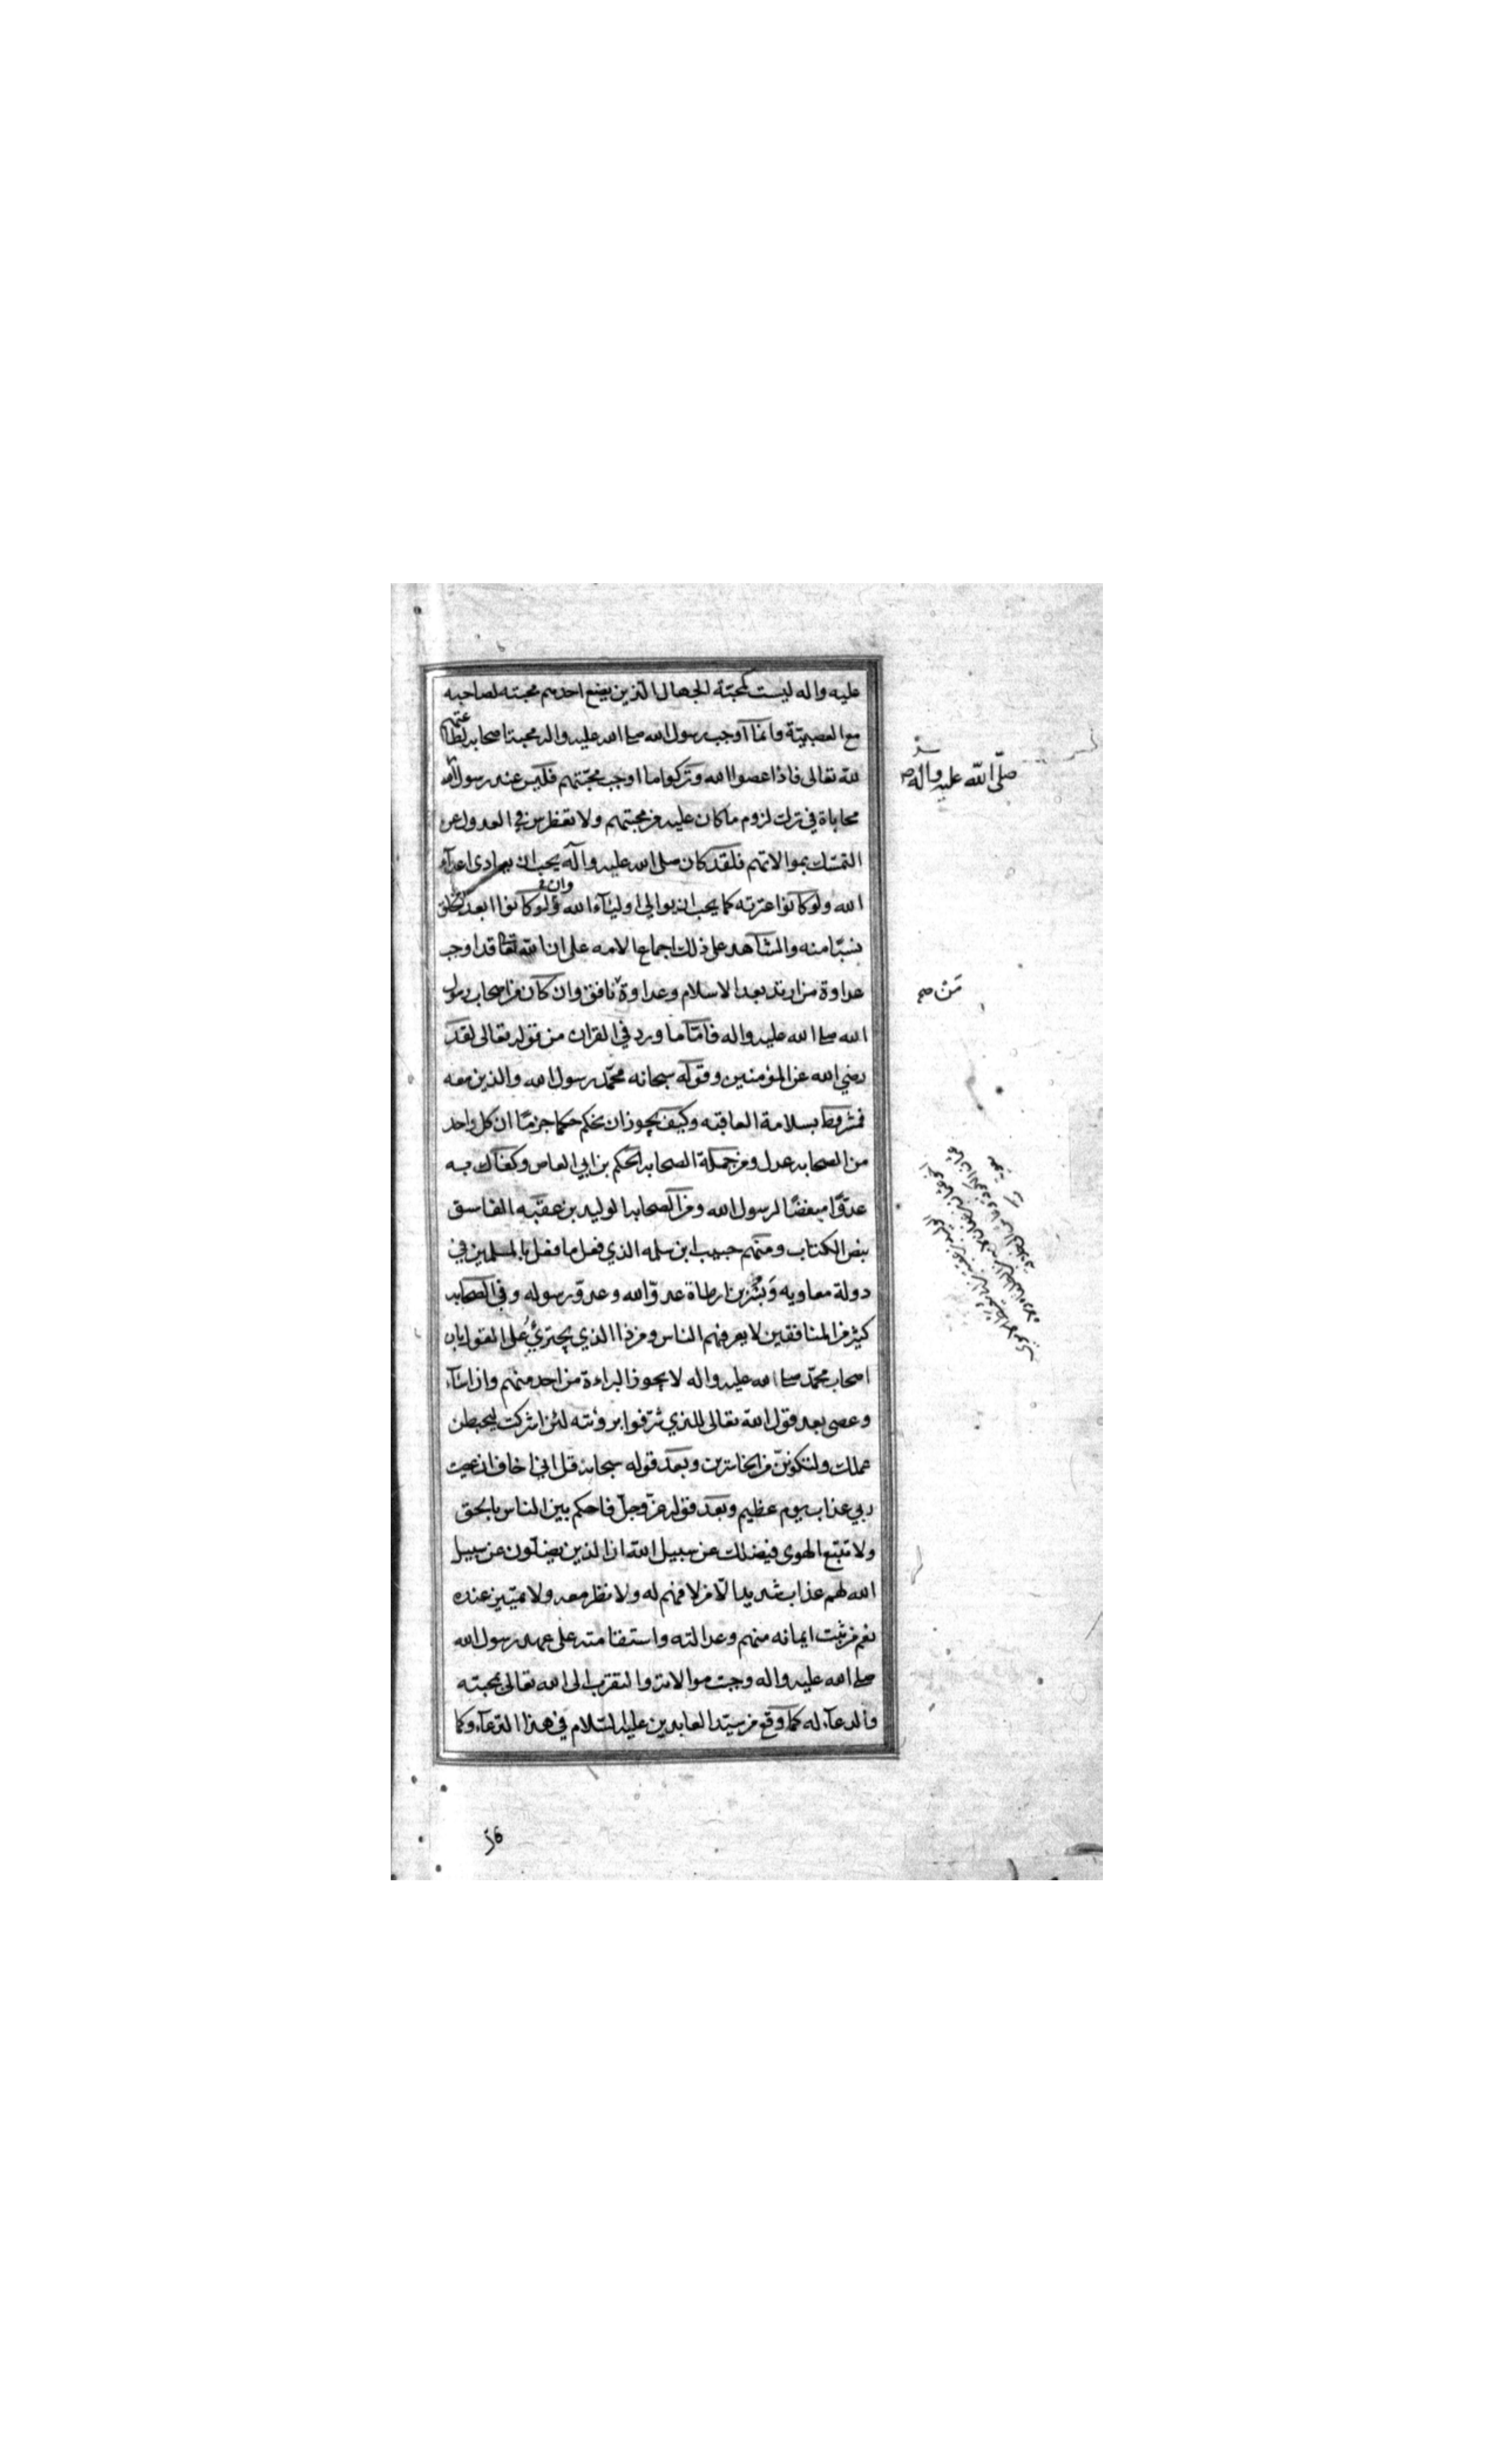 عليه واله ليست كمحبّة الجهال الذين يضع احدهم محبته لصاحبه
مع العصبيّة وانما اوجب رسول الله صلى الله عليه واله محبة اصحابه لطاعتهم
لله تعالى فاذا عصوا الله وتركوا ما اوجب محبّتهم فليس عند رسول الله
صلّى الله عليه واله صح
محاباة في ترك لزوم ما كان عليه من محبتهم ولا تغطرس في العدول عن
التمسّك بموالاتهم فلقد كان صلى الله عليه وآله يحب ان يعادى اعداء
الله ولو كانوا عترته كما يحب ان يوالي اولياء الله ولو كانوا ابعد الخلق
وان
نسبًا منه والشاهد على ذلك اجماع الامه على ان الله تعالى قد اوجب
عداوة من ارتد بعد الاسلام وعداوة نافق وان كان من اصحاب رسول
مَنْ صح
الله صلى الله عليه واله فامّا ما ورد في القران من قوله تعالى لقد
رضي الله عن المؤمنين وقوله سبحانه محمّد رسول الله والذين معه
فمشروط بسلامة العاقبه وكيف يجوز ان نحكم حكما جزمًا ان كل واحد
من الصحابه عدل ومن جملة الصحابه الحكم بن ابي العاص وكفاك به
عدوًّا مبغضًا لرسول الله ومن الصحابه الوليد بن عقبه الفاسق
بنص الكتاب ومنهم حبيب ابن سلمه الذي فعل ما فعل بالمسلمين في
دولة معاويه وبُسْر بن ارطاة عدوّ الله وعدوّ رسوله وفي الصحابه
كثير من المنافقين لا يعرفهم الناس ومن ذا الذي يجتريُ على القول بان
اصحاب محمّد صلى الله عليه واله لا يجوز البراءة من احد منهم وان اساء
وعصى بعد قول الله تعالى للذي شرّفوا برؤيته لئن اشركت ليحبطن
عملك ولتكوننّ من الخاسرين وبعد قوله سبحانه قل اني اخاف ان عصيت
ربي عذاب يوم عظيم وبعد قوله عزّ وجلّ فاحكم بين الناس بالحق
ولا تتبع الهوى فيضلك عن سبيل الله ان الذين يضلّون عن سبيل
الله لهم عذاب شديد الّا من لا فهم له ولا نظر معه ولا تمييز عنده
نعم من ثبت ايمانه منهم وعدالته واستقامته على عهد رسول الله
صلى الله عليه واله وجبت موالاته والتقرب الى الله تعالى بمحبته
والدعاء له كما وقع من سيّد العابدين عليه السّلام في هذا الدّعاء وكما